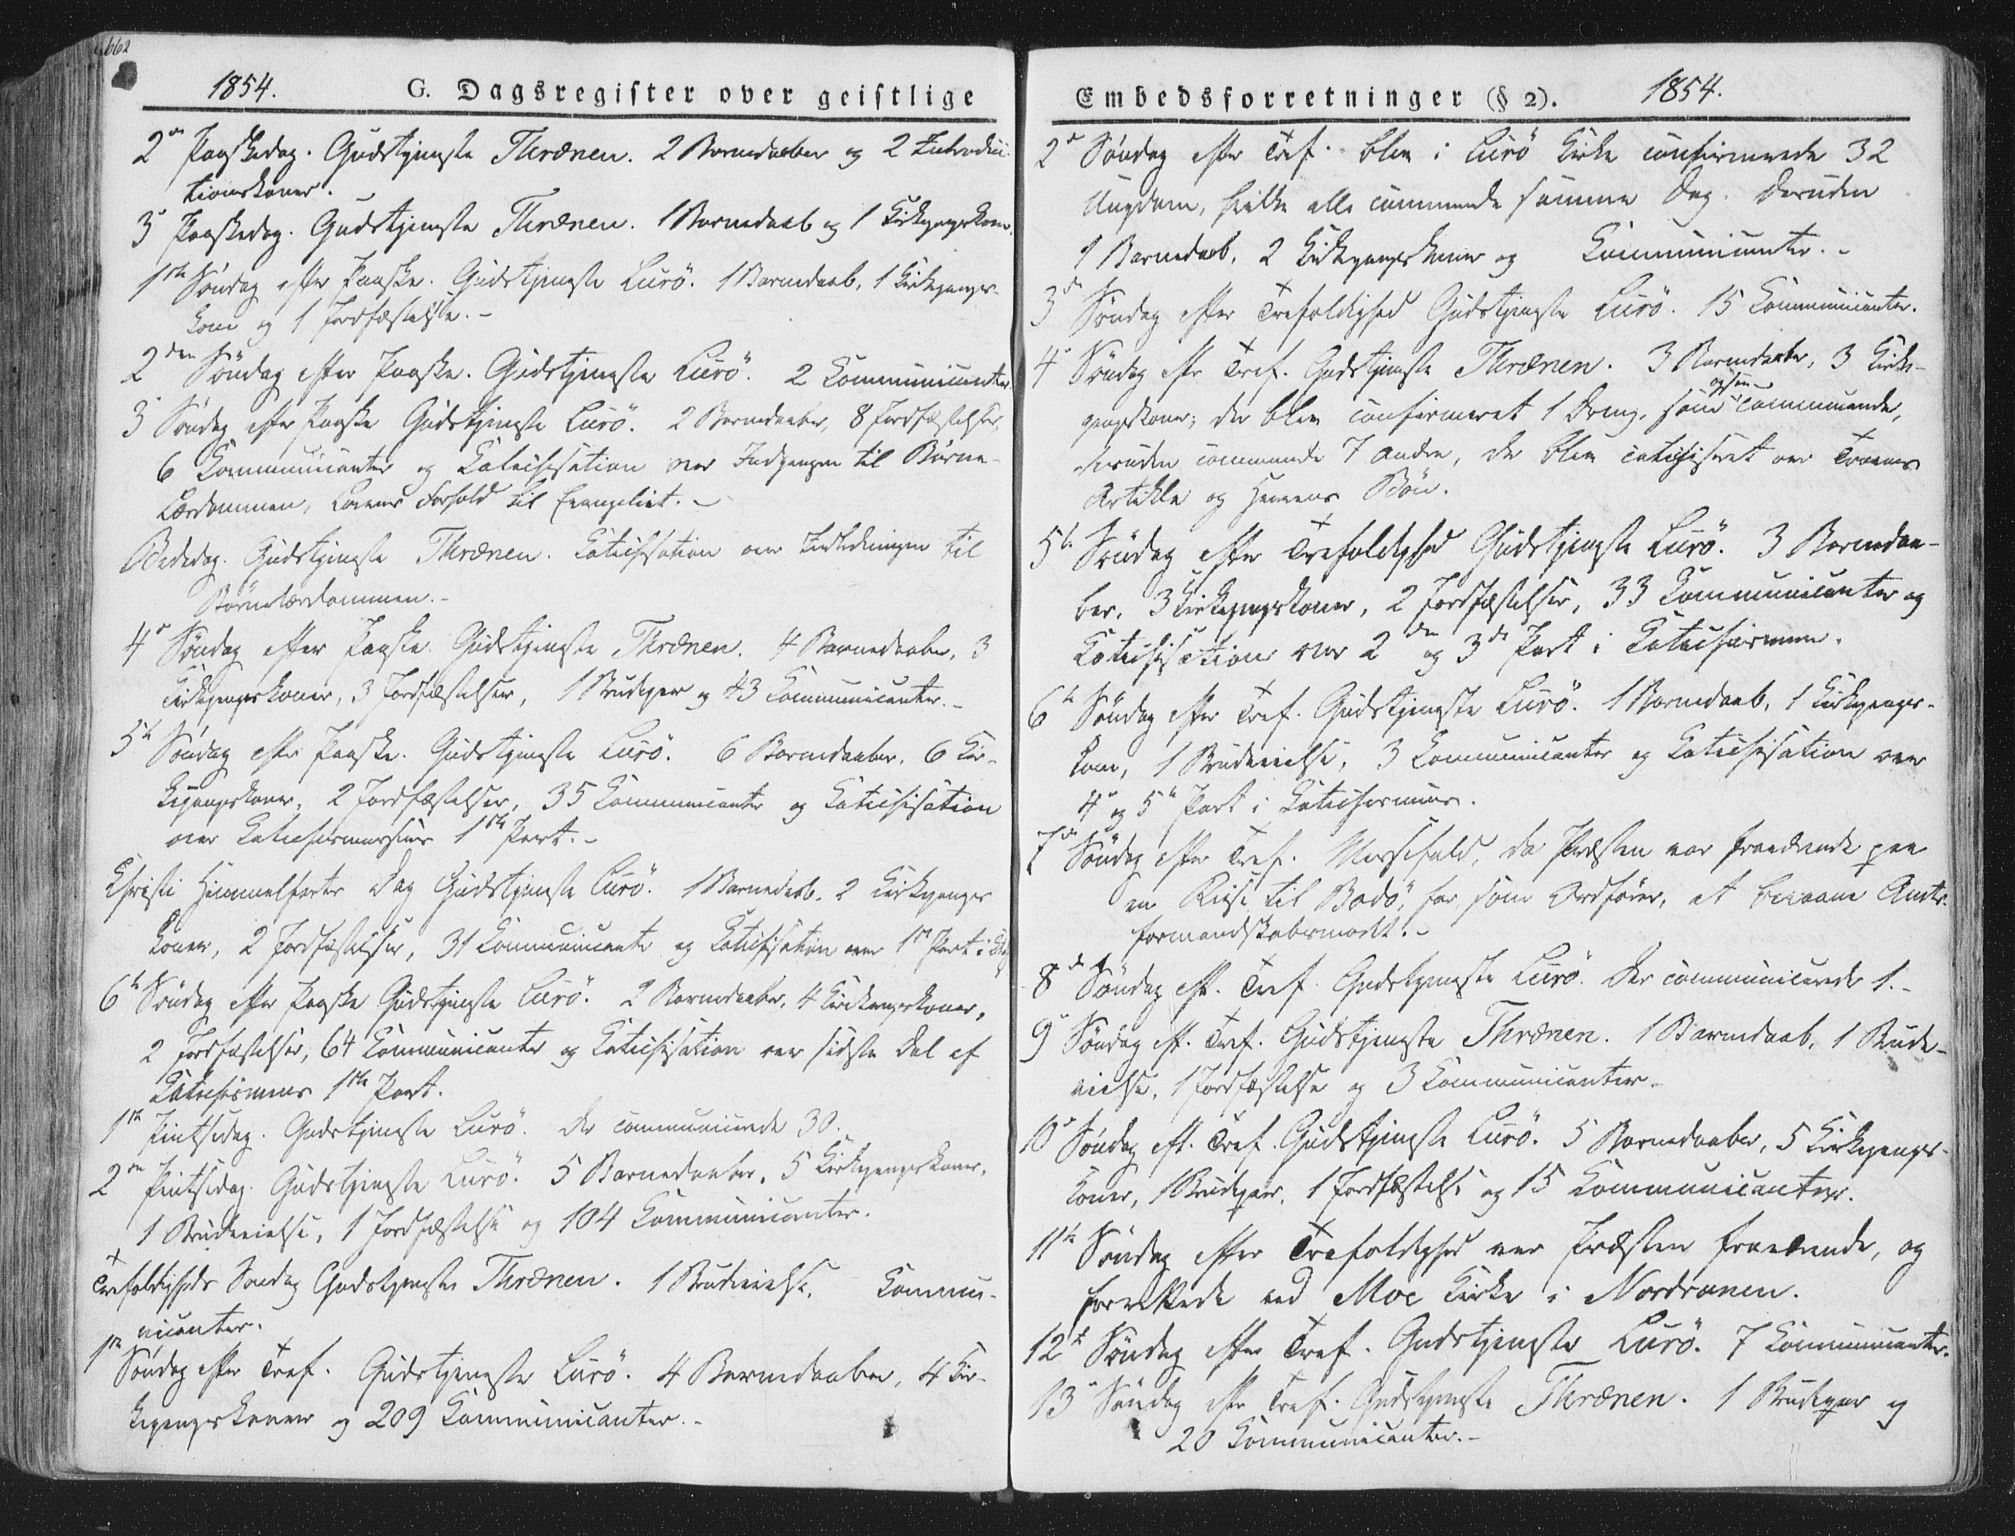 662
1854. G. Dagsregister over geistlige
2den Paaskedag. Gudstjeneste Thrænen. 2 Barnedaaber og 2 Introduc-
tionskoner.
3 Paaskedag. Gudstjeneste Thrænen. 1 Barnedaab og 1 Kirkegangskone.
1ste Søndag efter Paaske. Gudstjeneste Lurö. 1 Barnedaab, 1 Kirkegangs-
kone og 1 Jordfæstelse.-
2den Søndag efter Paaske. Gudstjeneste Lurö. 2 Communicanter
3 Søndag efter Paaske Gudstjeneste Lurö. 2 Barnedaaber, 8 Jordfæstelser,
6 Communicanter og Catechisation over Indgangen til Børne-
Lærdommen, Lovens Forhold til Evangeliet.-
Bededag. Gudstjeneste Thrænen. Catechisation over Indledningen til
Børnelærdommen.-
4 Søndag efter Paaske. Gudstjeneste Thrænen. 4 Barnedaaber, 3
Kirkegangskoner, 3 Jordfæstelser, 1 Brudepar og 43 Communicanter.-
5te Søndag efter Paaske. Gudstjeneste Lurö. 6 Barnedaaber, 6 Kir-
kegangskoner, 2 Jordfæstelser, 35 Communicanter og Catechisation
over Catechismussens 1ste Part.-
Christi Himmelfarts Dag Gudstjeneste Lurö. 1 Barnedaab, 2 Kirkegangs
koner, 2 Jordfæstelser, 31 Communicanter og Catechisation over 1ste Part i
6te Søndag efter Paaske Gudstjeneste Lurö. 2 Barnedaaber, 4 Kirkegangskoner,
2 Jordfæstelser, 64 Communicanter og Catechisation over sidste Del af
Catechismens 1ste Part.
1ste Pintsedag. Gudstjeneste Lurö. Der communicerede 30.
2den Pintsedag. Gudstjeneste Lurö. 5 Barnedaaber, 5 Kirkegangskoner,
1 Brudevielse, 1 Jordfæstelse og 104 Communicanter.
Trefoldigheds Søndag Gudstjeneste Thrænen. 1 Brudevielse, Commu-
nicanter.
1ste Søndag efter Tref. Gudstjeneste Lurö. 4 Barnedaaber, 4 Kir-
kegangskoner og 209 Communicanter.-
Embedsforretninger (§ 2). 1854.
2 Søndag efter Tref. blev i Lurö Kirke confirmerede 32
Ungdom, hvilke alle communicerede samme Dag. Desuden
1 Barnedaab, 2 Kirkegangskoner og Communicanter.-
3 Søndag efter Trefoldighed Gudstjeneste Lurö. 15 Communicanter.
4 Søndag eftr Tref. Gudstjeneste Thrænen. 3 Barnedaaber, 3 Kirke-
ogsaa
gangskoner; der blev confirmeret 1 Dreng, som communicerede,
desuden communicerede 7 andre, der blev catechiseret over Troens
Artikler og Herrens Bön.
5te Søndag efter Trefoldighed Gudstjeneste Lurö. 3 Barnedaa-
ber, 3 Kirkegangskoner, 2 Jordfæstelser, 33 Communicanter og
Catechisation over 2den og 3die Part i Catechismen.
6te Søndag efter Tref. Gudstjeneste Lurö. 1 Barnedaab, 1 Kirkegangs-
kone, 1 Brudevielse, 3 Communicanter og Catechisation over
4 og 5te Part i Catechismus.
7de Søndag efter Tref. Messefald, da Præsten var fraværende paa
en Reise til Bodö, for som Ordfører, at bivaane Amts-
formandskabsmødet.-
8de Søndag eft. Tref. Gudstjeneste Lurö. Der communicerede 1.-
9 Søndag eft. Tref. Gudstjeneste Thrænen. 1 Barnedaab, 1 Brude-
vielse, 1 Jordfæstelse og 3 Communicanter.
10 Søndag eft. Tref. Gudstjeneste Lurö. 5 Barnedaaber, 5 Kirkegangs-
koner, 1 Brudepar, 1 Jordfæstelse og 15 Communicanter.
11te Søndag efter Trefoldighed var Præsten fraværende, og
forrettede ved Moe Kirke i Nordranen.
12te Søndag efter Tref. Gudstjeneste Lurö. 7 Communicanter.
13 Søndag eftr Tref. Gudstjeneste Thrænen. 1 Brudepar og
20 Communicanter.-